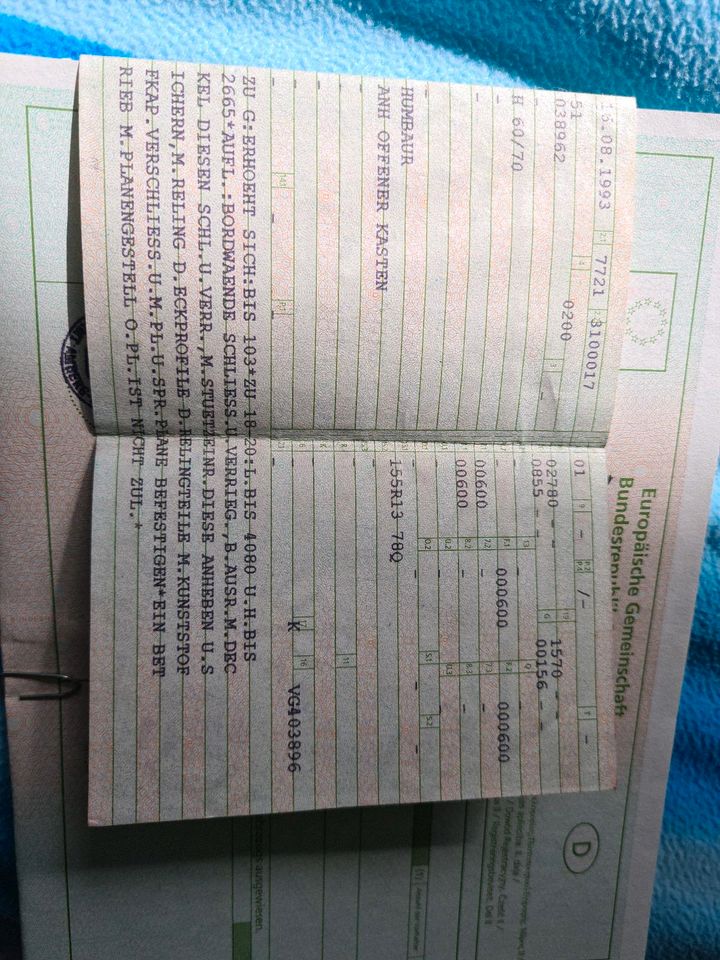 Europäische Gemeinschaft
D
16.08.1993 2.1 7721 3100017
51 4 0200 3 -
038962
-
H 60/70
-
HUMBAUR
ANH OFFENER KASTEN
-
14.1 -
P.1 -
01 9 - P.2 P.4 /- T -
02780 - - 19 1570 - -
0855 - - G 00156 - -
13 Q
00600 7.1 000600 7.2 000600
00600 8.2 - 8.3 -
U.2 - U.3 -
O.2 - S.1 - S.2 -
155R13 78Q
-
11
17 K 16 VG403896
ZU G:ERHOEHT SICH:BIS 103*ZU 18-20:L.BIS 4080 U.H.BIS
2665*AUFL.:BORDWAENDE SCHLIESS.U.VERRIEG.,B.AUSR.M.DEC
KEL DIESEN SCHL.U.VERR.,M.STUETZEINR.DIESE ANHEBEN U.S
ICHERN,M.RELING D.ECKPROFILE D.RELINGTEILE M.KUNSTSTOF
FKAP.VERSCHLIESS.U.M.PL.U.SPR.PLANE BEFESTIGEN*EIN BET
RIEB M.PLANENGESTELL O.PL.IST NICHT ZUL.*
ausgewiesen.